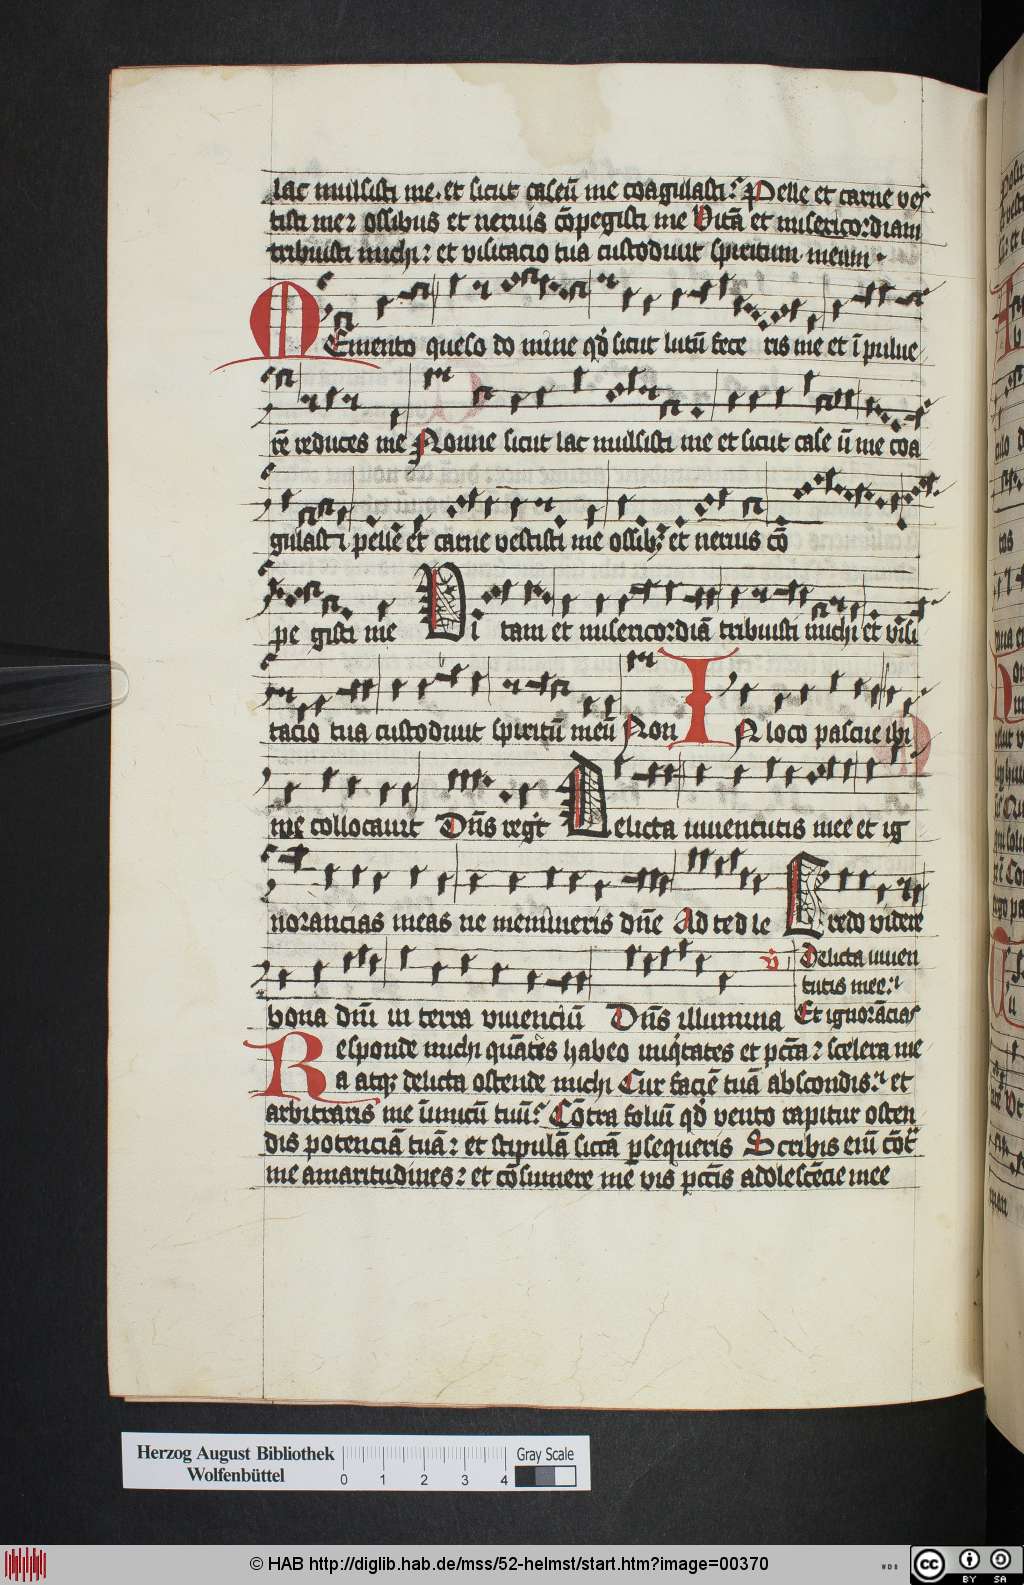 lac mulsisti me. et sicut caseū me coagulasti? Pelle et carne ves
tisti me? ossibus et neruis cōpegisti me Vitā et misericordiam
tribuisti michi? et visitacio tua custodiuit spiritum meum.
MEmento queso do mine qd sicut lutū fece ris me et ī pulue
rē reduces me Nonne sicut lac mulsisti me et sicut case ū me coa
gulast i pelle et carne vestisti me ossibꝫ et neruis cō
pe gisti me Vi tam et misericordiā tribuisti michi et visi
tacio tua custodiuit spiritū meū Non IN loco pascue ibi
me collocauit Dn̄s reḡt Delicta iuuentutis mee et ig
norancias meas ne memineris dn̄e Ad te d le Credo videre
bona dn̄i in terra viuenciū Dn̄s illumina
v̄ Delicta iuuen
tutis mee?
Et ignorācias
Responde michi quātās habeo iniq̇tates et pctā? scelera me
a atqꝫ delicta ostende michi Cur faciē tuā abscondis? et
arbitraris me inimicū tuū? Cōtra foliū qd vento rapitur osten
dis potenciā tuā? et stipulā siccā psequeris Scribis eiū cōt
me amaritudines? et cōsumere me vis pctīs adolescēcie mee
Herzog August Bibliothek
Wolfenbüttel
0 1 2 3 4
Gray Scale
© HAB http://diglib.hab.de/mss/52-helmst/start.htm?image=00370
WDB
cc BY SA